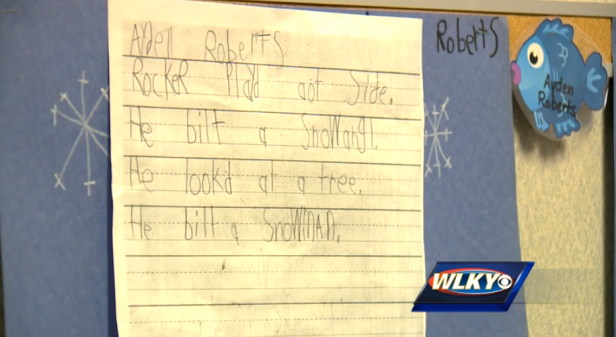 Ayden Roberts
Rocker Plad aot Side.
He bilt a Snowangl.
He lookd at a tree.
He bilt a SnoWmAn.
Roberts
Ayden
Roberts
WLKY